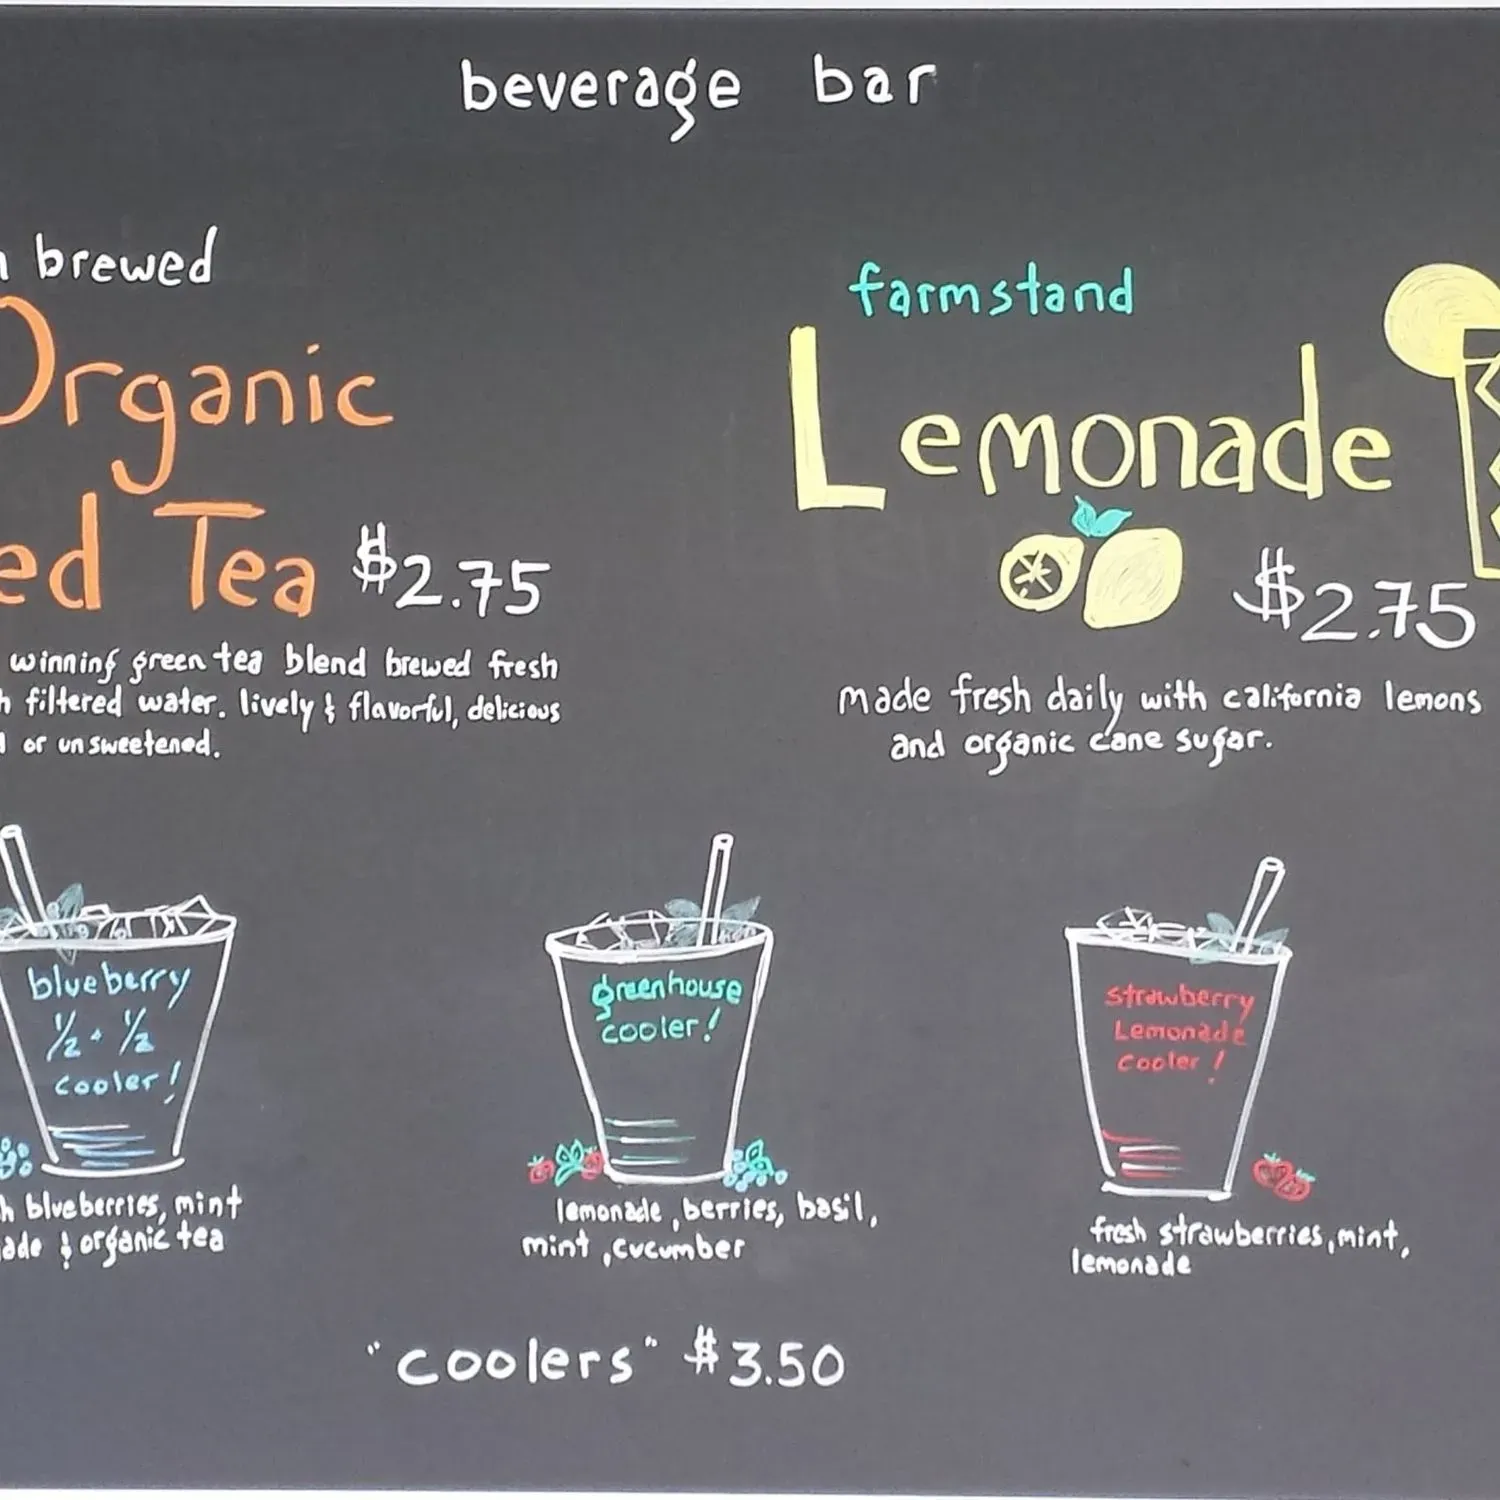 beverage bar
brewed
Organic
ed Tea $2.75
winning green tea blend brewed fresh
filtered water. lively & flavorful, delicious
or unsweetened.
farmstand
Lemonade
$2.75
made fresh daily with california lemons
and organic cane sugar.
blueberry
1/2 + 1/2
cooler!
blueberries, mint
ade & organic tea
greenhouse
cooler!
lemonade, berries, basil,
mint, cucumber
strawberry
Lemonade
cooler!
fresh strawberries, mint,
lemonade
"coolers" $3.50